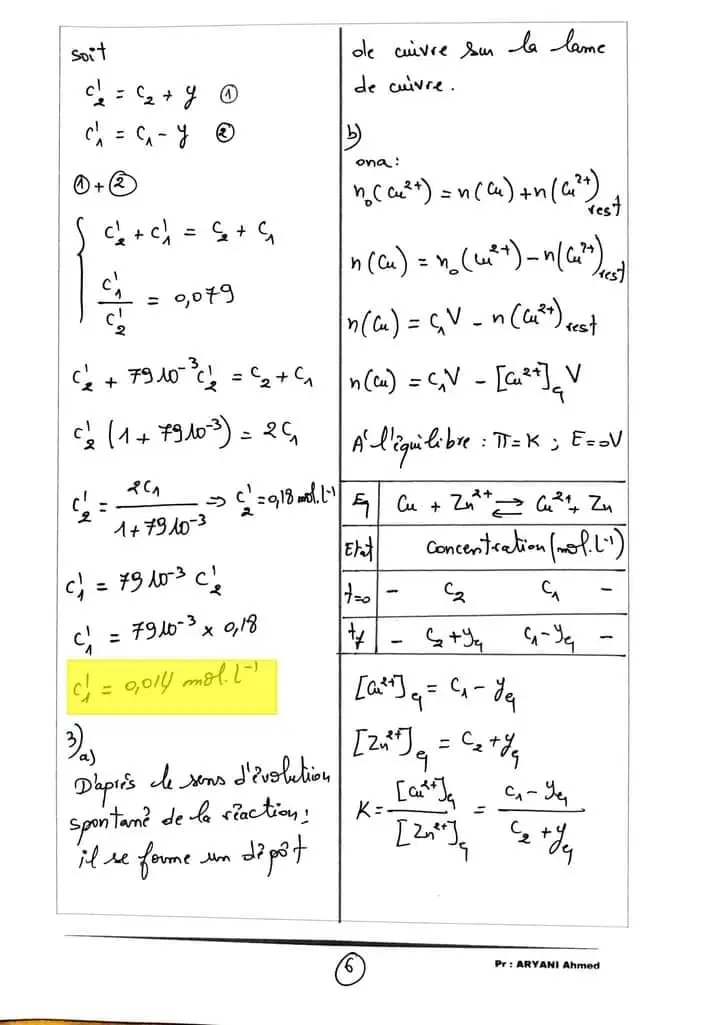 soit
c'₂ = c₂ + y ①
c'₁ = c₁ - y ②
① + ②
c'₂ + c'₁ = c₂ + c₁
c'₁/c'₂ = 0,079
c'₂ + 79 10⁻³ c'₂ = c₂ + c₁
c'₂ (1 + 79 10⁻³) = 2c₁
c'₂ = 2c₁/(1 + 79 10⁻³) ⇒ c'₂ = 0,18 mol.l⁻¹
c'₁ = 79 10⁻³ c'₂
c'₁ = 79 10⁻³ × 0,18
c'₁ = 0,014 mol.l⁻¹
3) a)
D'après le sens d'évolution
spontané de la réaction :
il se forme un dépôt
de cuivre sur la lame
de cuivre.
b)
ona :
n₀(Cu²⁺) = n(Cu) + n(Cu²⁺)rest
n(Cu) = n₀(Cu²⁺) - n(Cu²⁺)rest
n(Cu) = c₁V - n(Cu²⁺)rest
n(Cu) = c₁V - [Cu²⁺]éq V
A l'équilibre : π = K ; E = 0V
Eq Cu + Zn²⁺ ⇌ Cu²⁺ + Zn
Etat Concentration (mol.l⁻¹)
t=0 - c₂ c₁ -
tf - c₂ + yéq c₁ - yéq -
[Cu²⁺]éq = c₁ - yéq
[Zn²⁺]éq = c₂ + yéq
K = [Cu²⁺]éq/[Zn²⁺]éq = (c₁ - yéq)/(c₂ + yéq)
6
Pr : ARYANI Ahmed